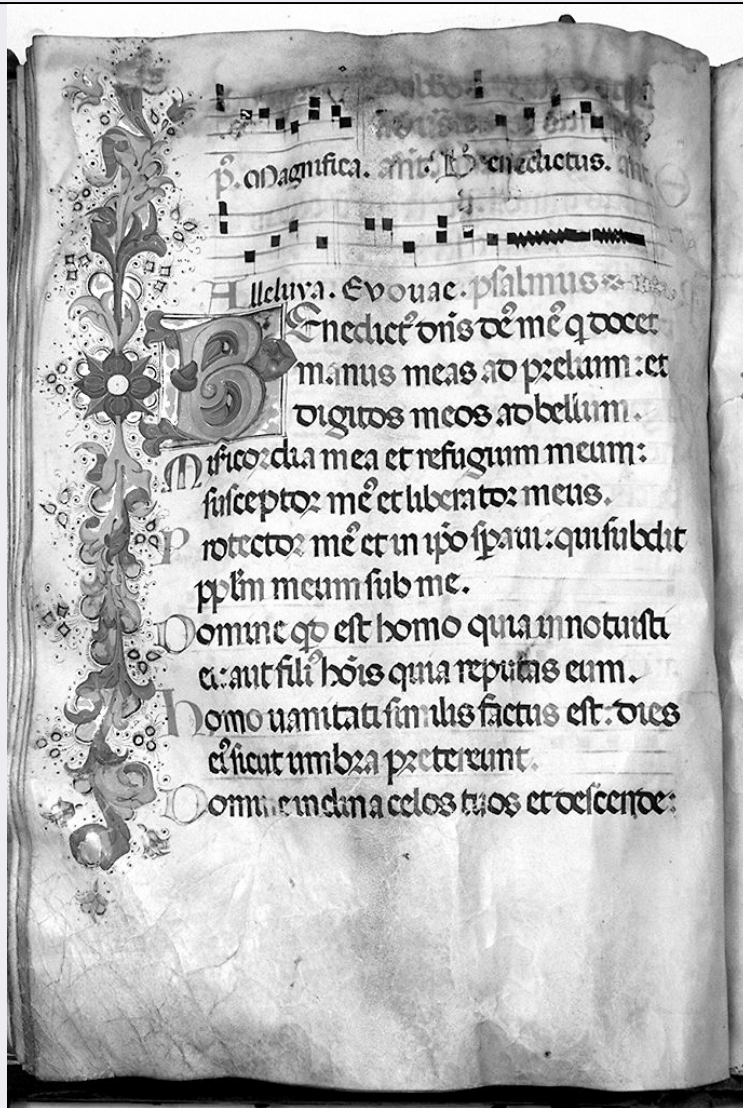 p̄. Magnifica. añt. Benedictus. añt.
Alleluya. Evouae. psalmus
BEnedict᷒ dn̄s de᷒ me᷒ q docet
manus meas ad prelium: et
digitos meos ad bellum.
Misicordia mea et refugium meum:
susceptor me᷒ et liberator meus.
Protector me᷒ et in ip̄o sp̄aui: qui subdit
pplm̄ meum sub me.
Domine qd̄ est homo quia innotuisti
ei: aut fili᷒ hōis quia reputas eum.
homo uanitati similis factus est: dies
ei᷒ sicut umbra pretereunt.
Domine inclina celos tuos et descende: